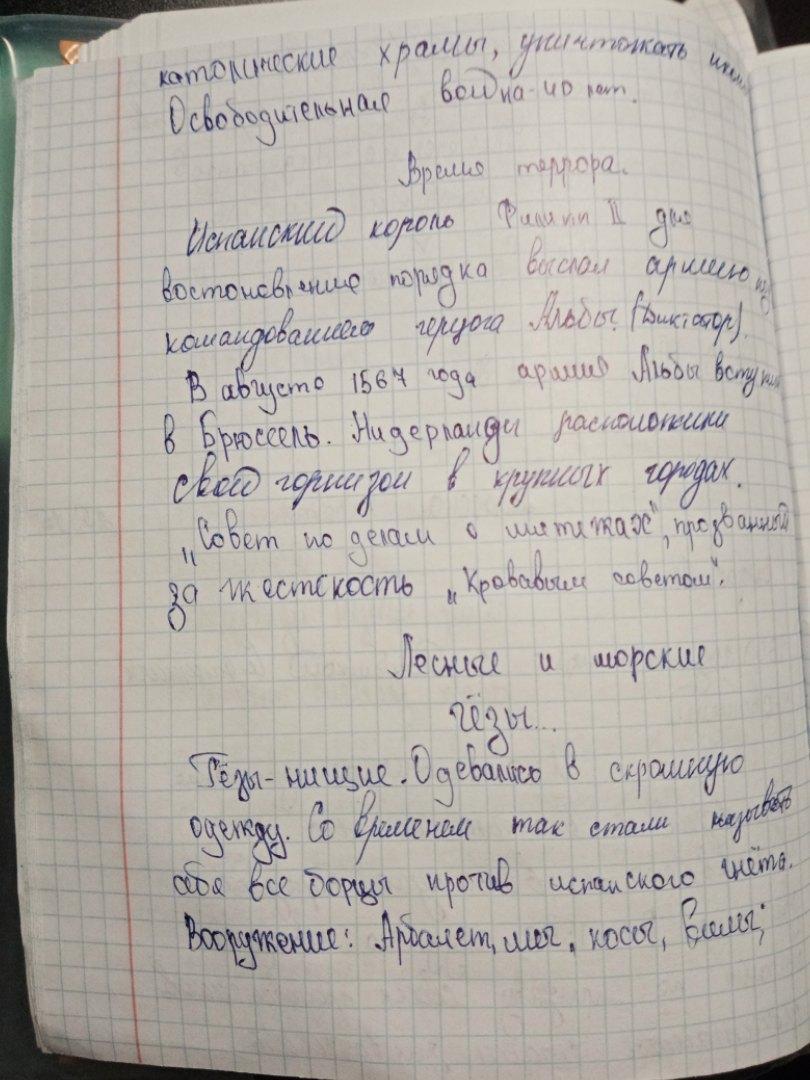 католические храмы, уничтожать
Освободительная война-40 лет.
Время террора.
Испанский король Филипп II для
востоновление порядка выслал армию
командованием герцога Альбы. (Диктатор).
В августо 1567 года армия Альбы вступил
в Брюссель. Нидерланды расположили
свой горнизон в крупных городах.
„Совет по делам о мятежах", прозванный
за жестокость „Кровавым советом".
Лесные и морские
гёзы...
Гёзы-нищие. Одевались в скромную
одежду. Со временем так стали называть
себя все борцы против испанского гнёта.
Вооружение: Арбалет, мечи, косы, вилы;